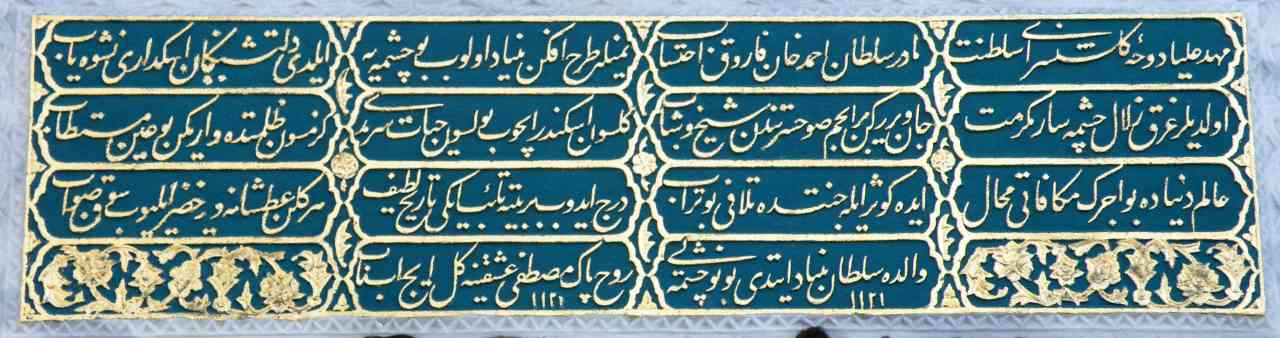 مهد علیا دوحهٔ کلشنسرای سلطنت
مادر سلطان احمد خان فاروق احتساب
یمنیله طرح افکن بنیاد اولوب بو چشمه یه
ایلدی دلتشنکان اسکداری نشوه یاب
اولدیلر غرق زلال چشمه سار مکرمت
جان ویررکن بر ایچم صو حسرتندن شیخ و شاب
کلسون اسکندر ایچوب بولسون حیات سرمدی
کزمسون ظلمتده وارمکن بو عین مستطاب
عالم دنیاده بو اجرک مکافاتی محال
ایده کوثر ایله جنتده تلافی بوتراب
درج ایدوب بر بیتده تائب ایکی تاریخ لطیف
هر کلن عطشانه دیر خضر ایلیوب سعی و صواب
والده سلطان بنیاد ایتدی بو نو چشمه ئی ۱۱۲۱
روح پاک مصطفی عشقینه کل ایچ آب ناب ۱۱۲۱